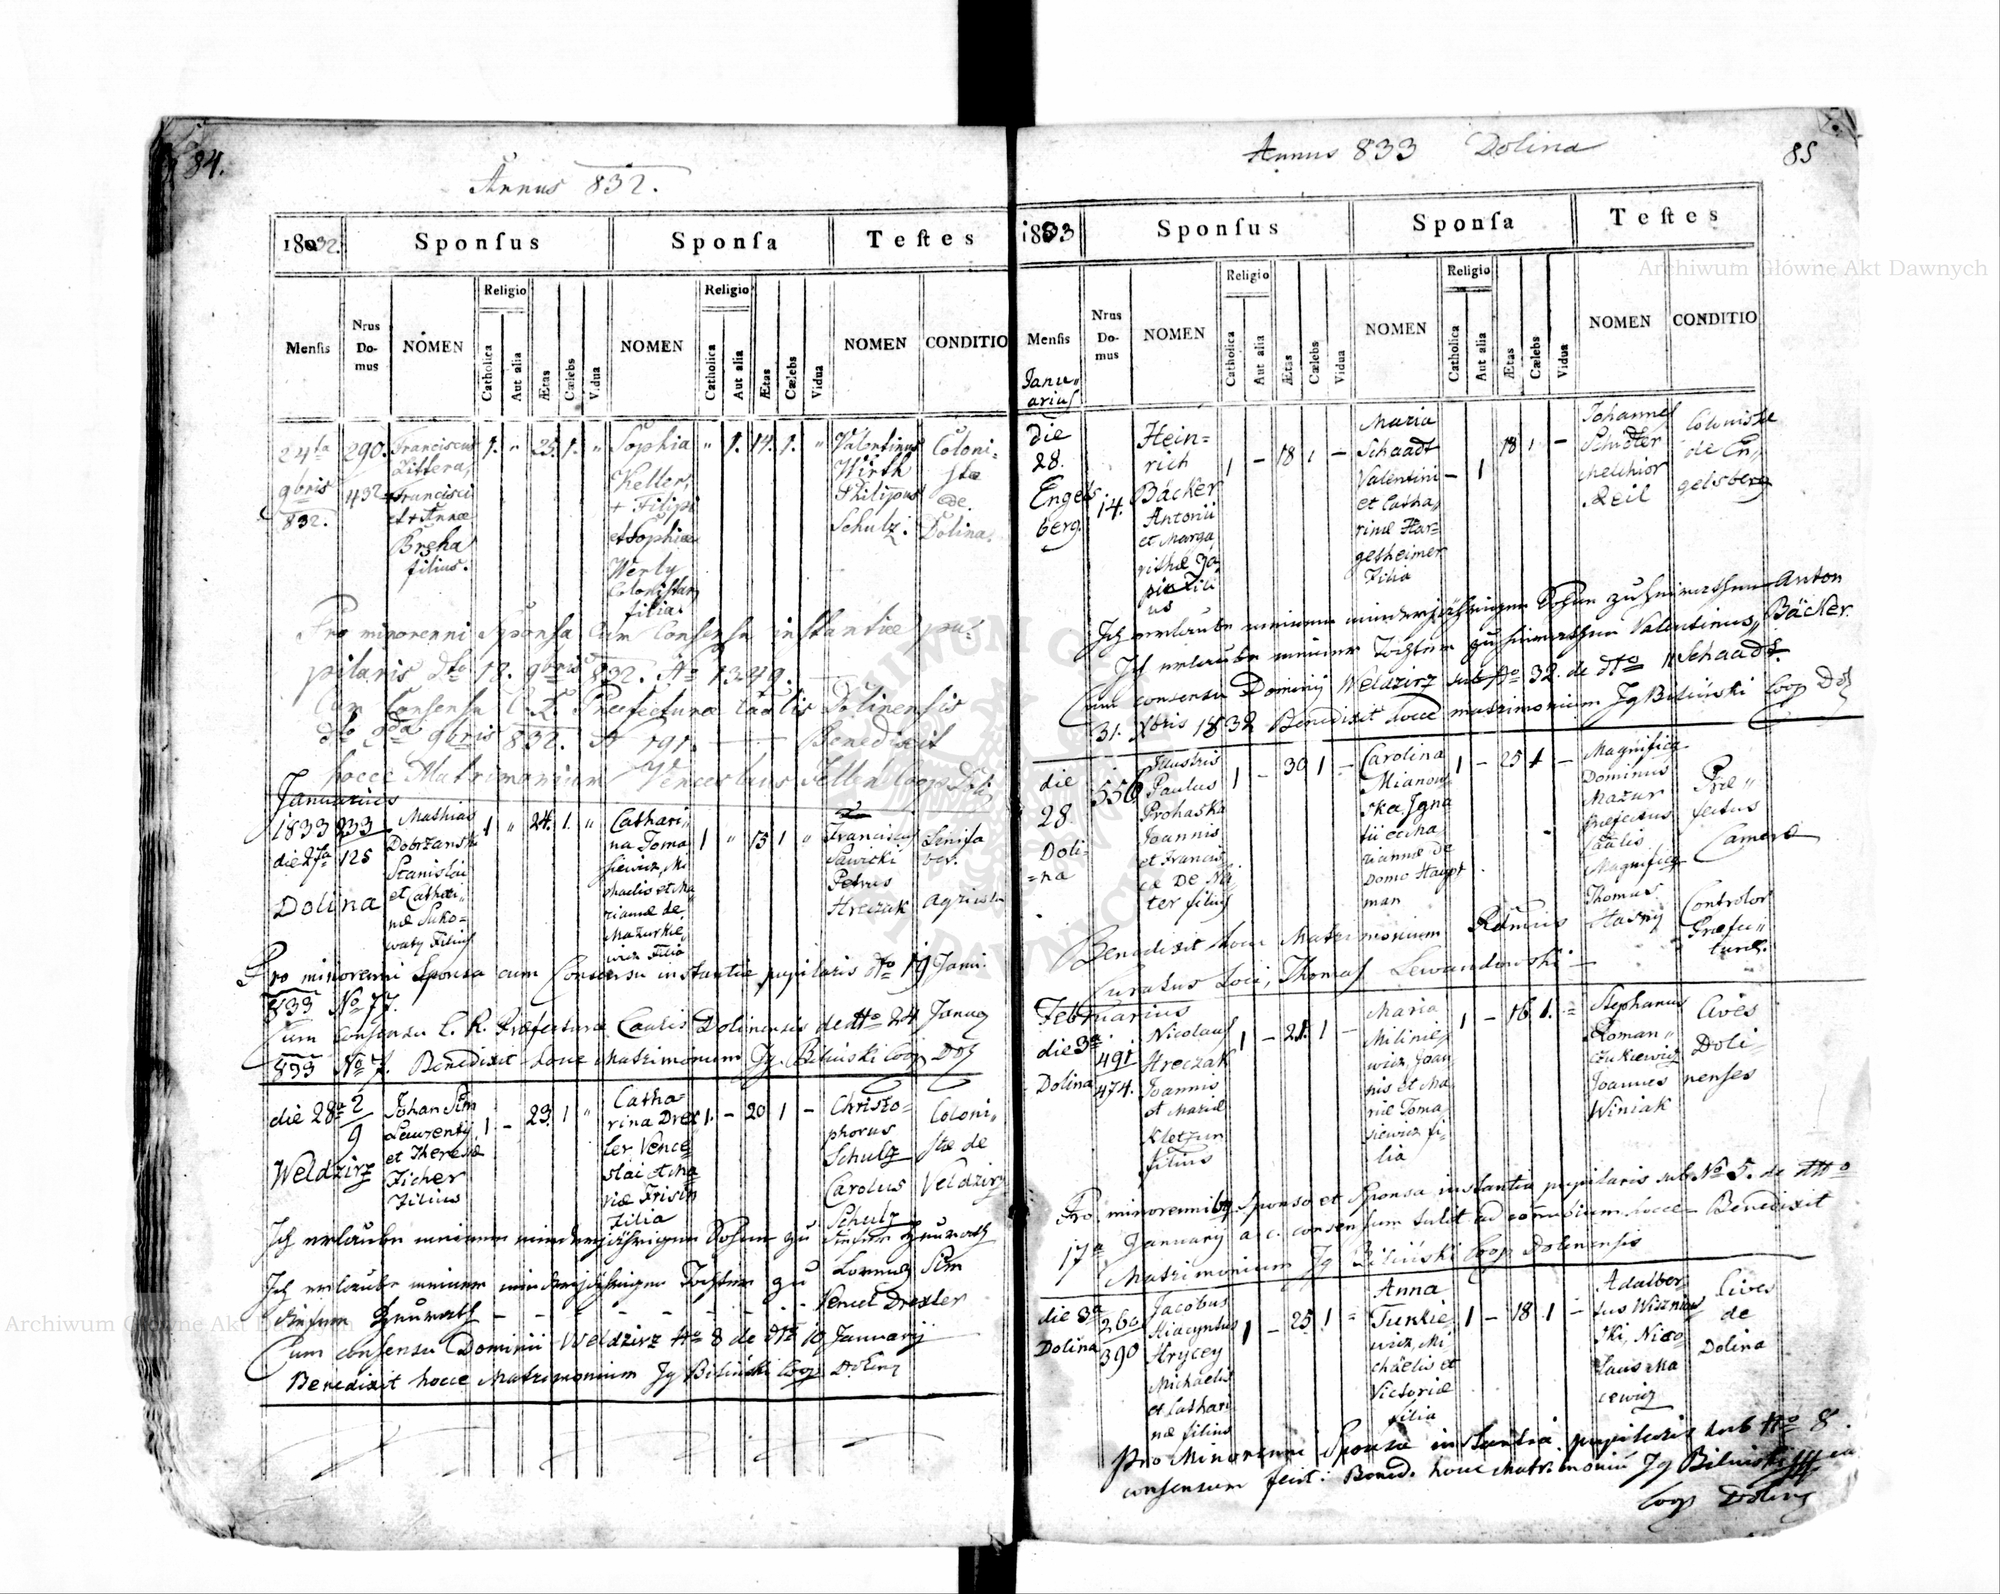 84.
Annus 832.
1832.
Sponſus
Sponſa
Teſtes
Menſis
Nrus Do-mus
NOMEN
Religio
Catholica
Aut alia
Ætas
Cælebs
Vidua
NOMEN
Religio
Catholica
Aut alia
Ætas
Cælebs
Vidua
NOMEN
CONDITIO
24ta
9bris
832.
290.
432
Franciscus
Littera,
Francisci
et + Annæ
Breha
filius.
1. " 25. 1. "
Sophia
Keller,
+ Filipi
et Sophiæ
Werly
Colonistarum
filia.
" 1. 19. 1. "
Valentinus
Wirth
Philippus
Schulz.
Coloni-
stæ
de
Dolina.
Pro minorenni Sponsa cum Consensu instantiæ pu-
pilaris dto 12. 9bris 832. No 1349.
Cum Consensu C. R. Præfecturæ Caalis Dolinensis
dto 9bris 832. N 191. Benedixit
hocce Matrimonium Venceslaus Coop Dol.
Januarius
1833
die 27a
Dolina
233
125
Mathias
Dobrzanski
Stanislai
et Cathari-
næ Suko-
waty Filius
1 " 24. 1. "
Cathari-
na Toma
siewicz, Mi
chaelis et Ma
rianæ de
Mazurkie
wicz Filia
1 " 15 1 "
Franciscus
Sawicki
Petrus
Hreczak
agricola
Pro minorenni Sponsa cum Consensu instantiæ pupilaris dto 19 Janu.
833 No 77.
Cum Consensu C. R. Præfecturæ Caalis Dolinensis de dto 24 Januar
833 No 7. Benedixit hocce Matrimonium Ig. Biliński Coop Dol
die 28a
Weldzirz
2
9
Johan Sim
Laurenty
et Theresiæ
Ficher
Filius
1 - 23. 1 "
Catha-
rina Drex
ler Vence
slai et Ma
riæ Frisin
Filia
1. - 20 1 -
Christo-
phorus
Schulz
Carolus
Schulz
Coloni-
stæ de
Veldzirz
Ich erlaube meinem minderjährigen Sohne zu heurath
Lorenz Sim
Ich erlaube meiner minderjährigen Tochter zu
heurath - - - - - Vencel Drexler
Cum consensu Dominii Weldzirz No 8 de dto 19 Januarij
Benedixit hocce Matrimonium Ig Biliński Coop Dolin
Annus 833 Dolina
85
1833
Sponſus
Sponſa
Teſtes
Menſis
Nrus Do-mus
NOMEN
Religio
Catholica
Aut alia
Ætas
Cælebs
Vidua
NOMEN
Religio
Catholica
Aut alia
Ætas
Cælebs
Vidua
NOMEN
CONDITIO
Janu-
arius
die
28.
Engels-
berg.
14.
Hein-
rich
Bäcker
Antonii
et Marga
rithæ
Fili
us
1 - 18 1 -
Maria
Schaadt
Valentini
et Catha,
rinæ Har-
gesheimer
Filia
- 1 18 1 -
Johannes
Schidler
Melchior
Keil
Colonistæ
de En,
gelsberg
Ich erlaube meinem minderjährigen Sohne zu heurathen Anton Bäcker.
Ich erlaube meiner Tochter zu heurathen Valentinus Schaadt.
Cum consensu Dominij Weldzirz sub No 32. de dto
31. Xbris 1832 Benedixit hocce matrimonium Ig Biliński Coop Dol
die
28.
Doli-
-na
556
Illustris
Paulus
Prohaska
Joannis
et Francis
cæ De Na
ter filius
1 - 30 1 -
Carolina
Mianow
ska, Igna
tii et Ma
riannæ de
Domo Haupt
man
1 - 25 1 -
Magnificq
Dominus
Mazur
Præfectus
Caalis
Magnificq
Thomas
Hasny
Præ"
fectus
Cameræ
Controlor
Præfec-
turæ.
Benedixit hocce Matrimonium Rdmus
Curatus Loci, Thomas Lewandowski
Februarius
die 3a
Dolina
491
474.
Nicolaus
Hreczak
Joannis
et Mariæ
Kletzun
filius
1 - 21. 1 -
Maria
Milinie,
wicz, Joan
nis et Ma
riæ Toma
siewicz fi-
lia
1 - 16 1. =
Stephanus
Roman"
czukiewicz
Joannes
Winiak
Cives
Doli-
nenses
Pro minorennibq Sponso et Sponsa instantia pupilaris sub No 5. de dtto
17a January a. c. consensum tulit ad connubium hocce - Benedixit
Matrimonium Ig Biliński Coop Dolinensis
die 3a
Dolina
260
390
Jacobus
Hiacyntus
Hrycey
Michaelis
et Cathari
næ filius
1 - 25 1 =
Anna
Turkie,
wicz, Mi
chaelis et
Victoriæ
filia
1 - 18 1 -
Adalber
tus Wiszniow
ski, Nico
laus Ma
cewicz
Cives
de
Dolina
Pro Minorenni Sponsa instantia pupilaris sub No 8.
consensum fecit: Bened. hocce Matrimoniu Ig Biliński
Coop Dolin
Archiwum Główne Akt Dawnych
Archiwum Główne Akt Dawnych